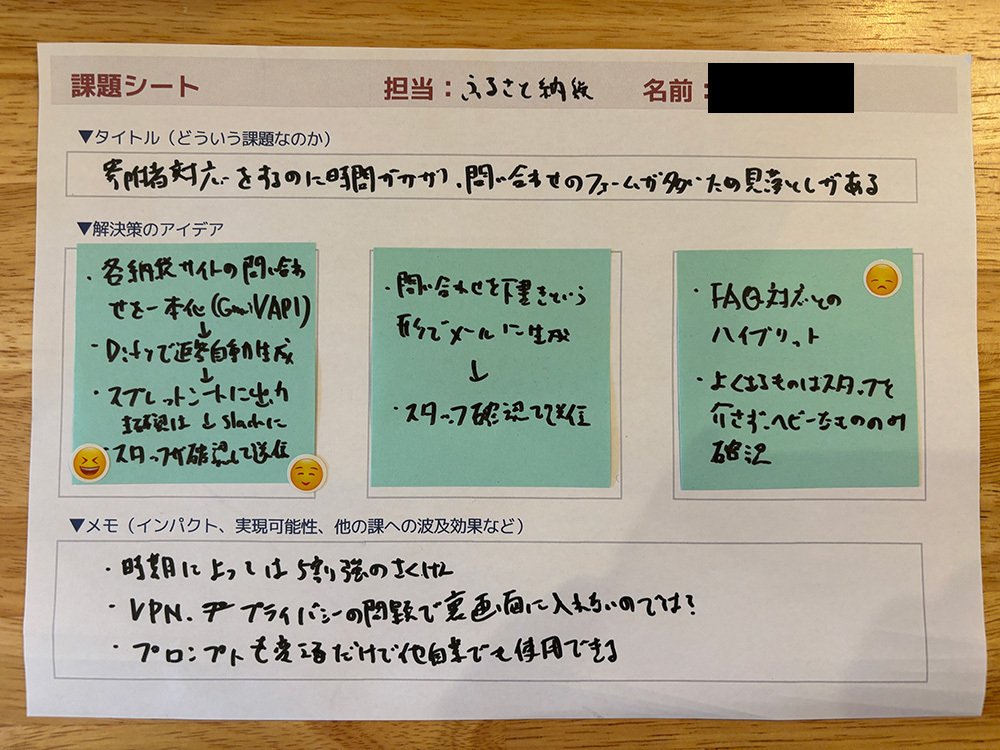 課題シート 担当：ふるさと納税 名前：
▼タイトル（どういう課題なのか）
寄附者対応をするのに時間がかかり、問い合わせのフォームが多いため見落としがある
▼解決策のアイデア
・各納税サイトの問い合わ
せを一本化(GmailやAPI)
↓
・Difyで返答自動生成
↓
・スプレットシートに出力
確認は ↓ Slackに
・スタッフが確認して送信
・問い合わせを下書きという
形でメールに生成
↓
・スタッフ確認して送信
・FAQ対応との
ハイブリット
・よくあるものはスタッフを
介さず、ヘビーなもののみ
確認
▼メモ（インパクト、実現可能性、他の課への波及効果など）
・時期によっては5割強のさくげん
・VPN、プライバシーの問題で裏画面に入れないのでは？
・プロンプトを変えるだけで他自業でも使用できる